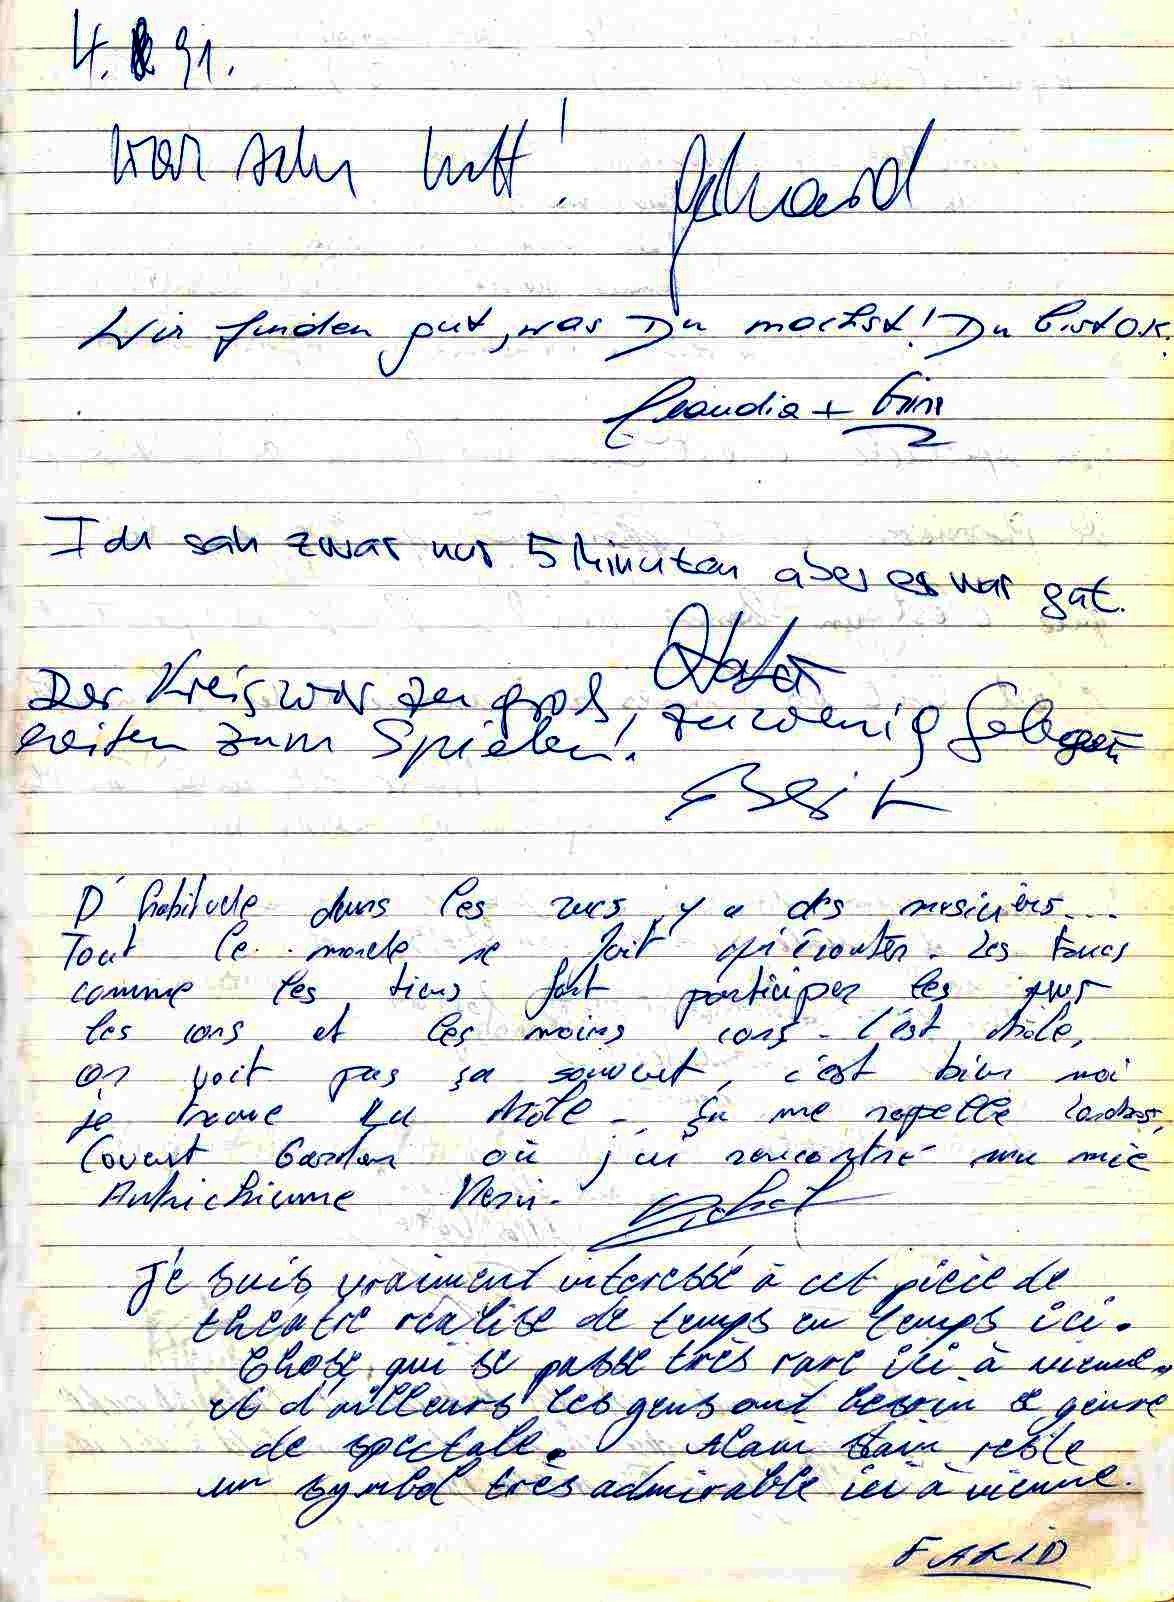 4. 91.
War sehr nett! Gerhard
Wir finden gut, was Du machst! Du bist O.K.
Claudia +
Ich sah zwar nur 5 Minuten aber es war gut.
Der Kreis war zu groß, zuwenig Gelegen-
heiten zum Spielen!
D'habitude dans les rues y a des musiciens...
Tout le monde ne fait qu'écouter. Les trucs
comme les tiens font participer les gens
les cons et les moins cons. C'est drôle,
on voit pas ça souvent, c'est bien moi
je trouve ça drôle. Ça me rappelle Londres,
Covent Garden où j'ai rencontré ma mie
Autrichienne
Je suis vraiment interessé à cet pièce de
theatre realise de temps en temps ici.
Chose qui se passe très rare ici à vienne.
et d'ailleurs les gens ont besoin ce genre
de spectale. Alain reste
un symbol très admirable ici à vienne.
FARID